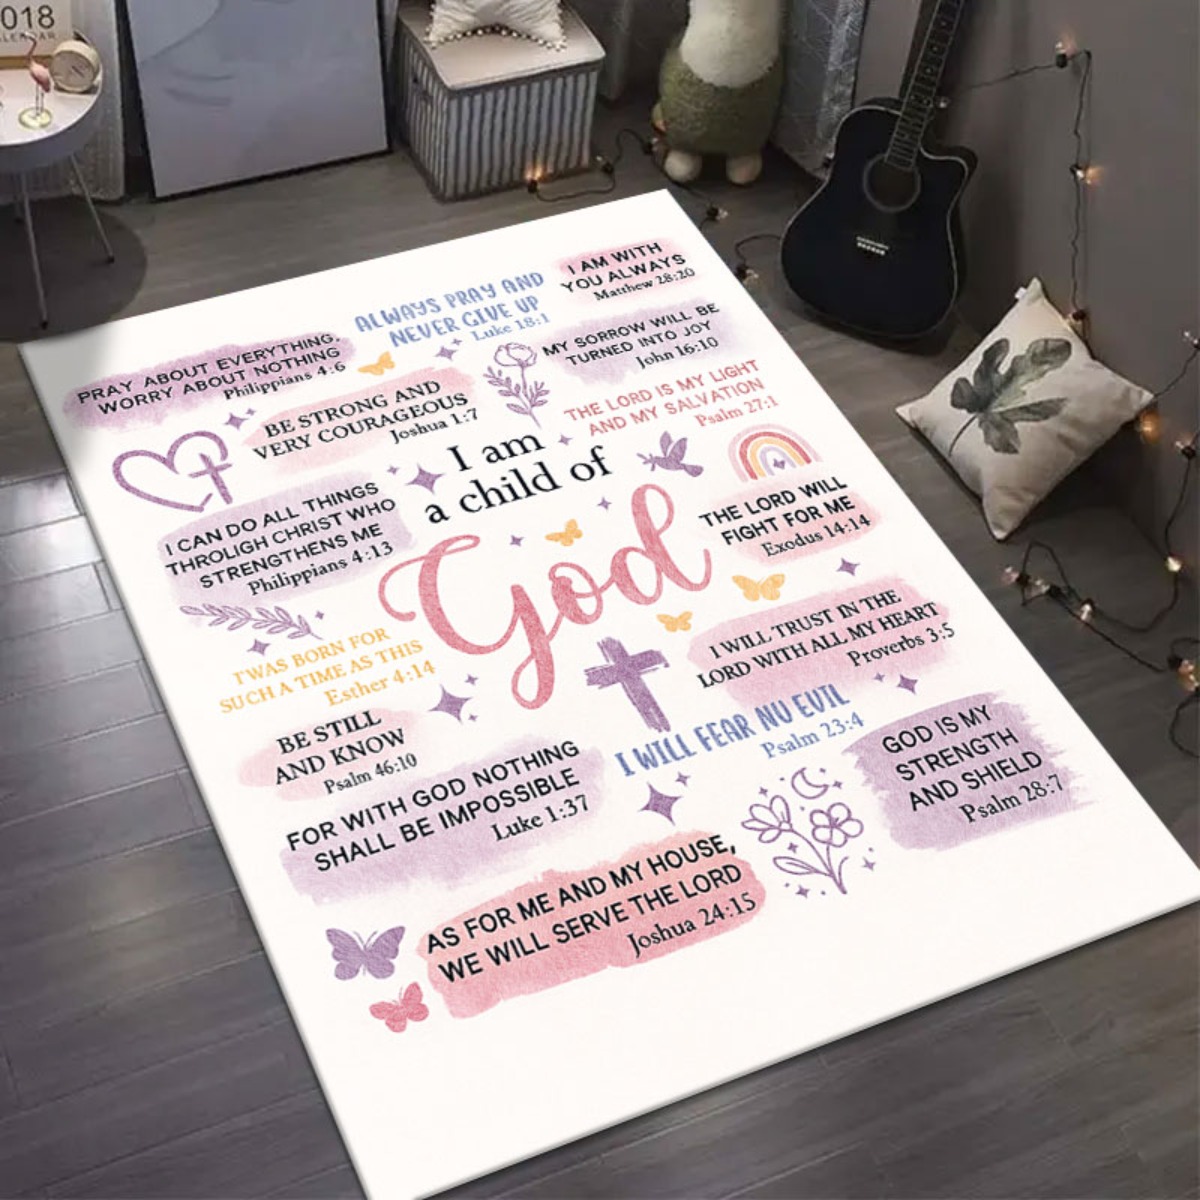 018
CALENDAR
I AM WITH
YOU ALWAYS
Matthew 28:20
ALWAYS PRAY AND
NEVER GIVE UP
Luke 18:1
MY SORROW WILL BE
TURNED INTO JOY
John 16:10
PRAY ABOUT EVERYTHING,
WORRY ABOUT NOTHING
Philippians 4:6
BE STRONG AND
VERY COURAGEOUS
Joshua 1:7
THE LORD IS MY LIGHT
AND MY SALVATION
Psalm 27:1
I am
a child of
God
I CAN DO ALL THINGS
THROLIGH CHRIST WHO
STRENGTHENS ME
Philippians 4:13
THE LORD WILL
FIGHT FOR ME
Exodus 14:14
I WILL TRUST IN THE
LORD WITH ALL MY HEART
Proverbs 3:5
I'WAS BORN FOR
SUCH A TIME AS THIS
Esther 4:14
BE STILL
AND KNOW
Psalm 46:10
I WILL FEAR NU EVIL
Psalm 23:4
GOD IS MY
STRENGTH
AND SHIELD
Psalm 28:7
FOR WITH GOD NOTHING
SHALL BE IMPOSSIBLE
Luke 1:37
AS FOR ME AND MY HOUSE,
WE WILL SERVE THE LORD
Joshua 24:15